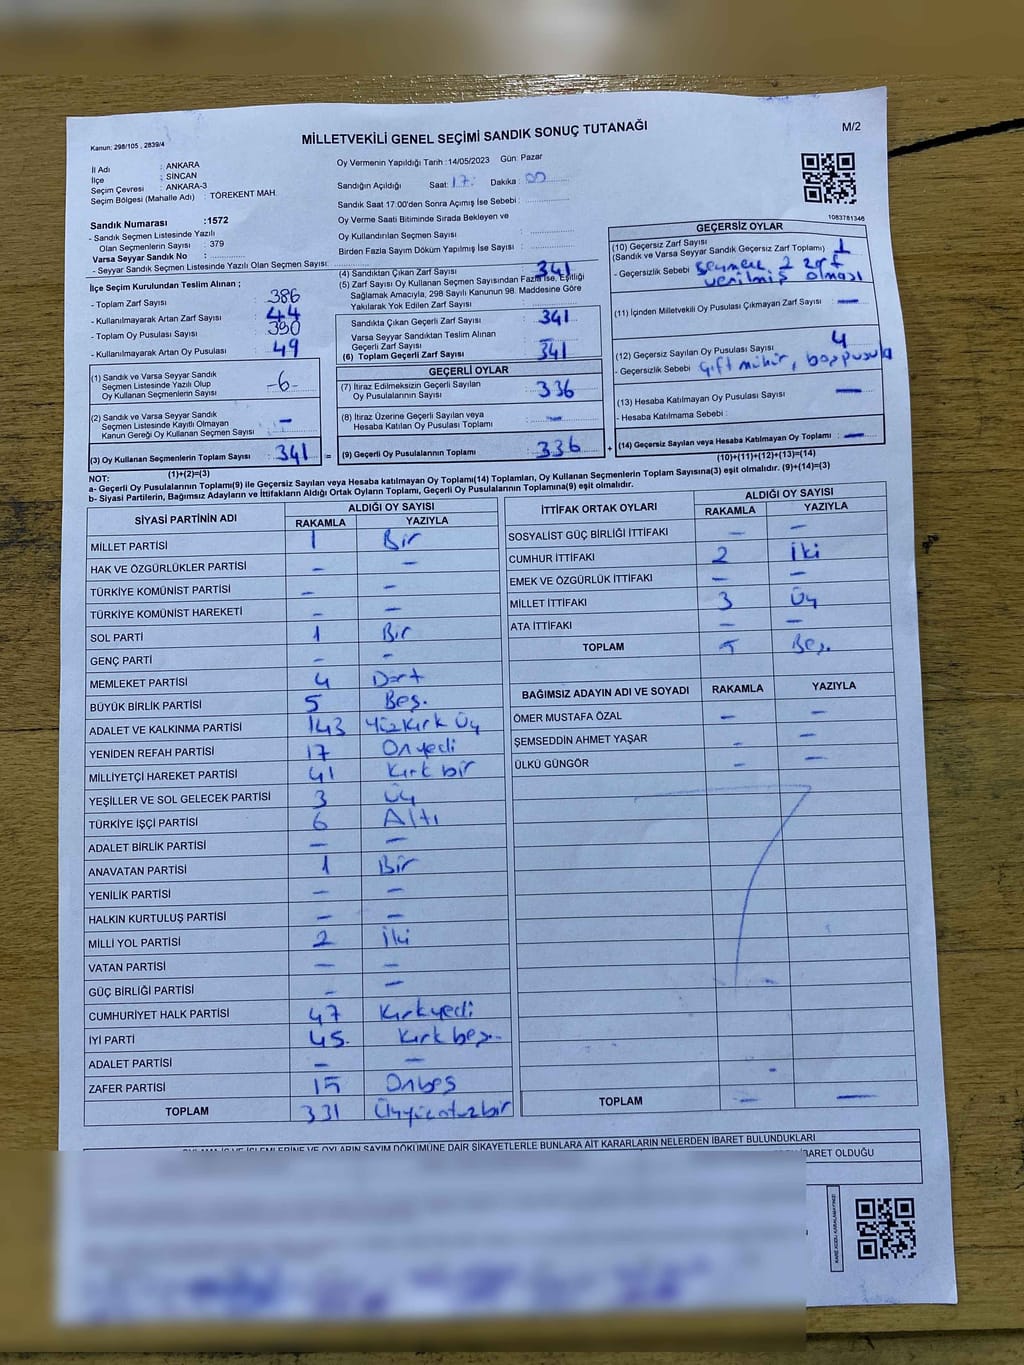 MİLLETVEKİLİ GENEL SEÇİMİ SANDIK SONUÇ TUTANAĞI
M/2
Kanun: 298/105 , 2839/4
İl Adı : ANKARA
İlçe : SİNCAN
Seçim Çevresi : ANKARA-3
Seçim Bölgesi (Mahalle Adı) : TÖREKENT MAH.
Sandık Numarası :1572
- Sandık Seçmen Listesinde Yazılı
Olan Seçmenlerin Sayısı : 379
Varsa Seyyar Sandık No :
- Seyyar Sandık Seçmen Listesinde Yazılı Olan Seçmen Sayısı:
İlçe Seçim Kurulundan Teslim Alınan ;
- Toplam Zarf Sayısı : 386
- Kullanılmayarak Artan Zarf Sayısı : 44
- Toplam Oy Pusulası Sayısı : 390
- Kullanılmayarak Artan Oy Pusulası : 49
(1) Sandık ve Varsa Seyyar Sandık
Seçmen Listesinde Yazılı Olup
Oy Kullanan Seçmenlerin Sayısı
(2) Sandık ve Varsa Seyyar Sandık
Seçmen Listesinde Kayıtlı Olmayan
Kanun Gereği Oy Kullanan Seçmen Sayısı : -
(3) Oy Kullanan Seçmenlerin Toplam Sayısı : 341 =
(1)+(2)=(3)
Oy Vermenin Yapıldığı Tarih : 14/05/2023 Gün: Pazar
Sandığın Açıldığı Saat: 17 : Dakika : 00
Sandık Saat 17:00'den Sonra Açımış İse Sebebi :
Oy Verme Saati Bitiminde Sırada Bekleyen ve
Oy Kullandırılan Seçmen Sayısı :
Birden Fazla Sayım Döküm Yapılmış İse Sayısı :
(4) Sandıktan Çıkan Zarf Sayısı : 341
(5) Zarf Sayısı Oy Kullanan Seçmen Sayısından Fazla İse, Eşitliği
Sağlamak Amacıyla, 298 Sayılı Kanunun 98. Maddesine Göre
Yakılarak Yok Edilen Zarf Sayısı :
Sandıkta Çıkan Geçerli Zarf Sayısı : 341
Varsa Seyyar Sandıktan Teslim Alınan
Geçerli Zarf Sayısı :
(6) Toplam Geçerli Zarf Sayısı : 341
GEÇERLİ OYLAR
(7) İtiraz Edilmeksizin Geçerli Sayılan
Oy Pusulalarının Sayısı : 336
(8) İtiraz Üzerine Geçerli Sayılan veya
Hesaba Katılan Oy Pusulası Toplamı : -
(9) Geçerli Oy Pusulalarının Toplamı : 336 +
1083781346
GEÇERSİZ OYLAR
(10) Geçersiz Zarf Sayısı
(Sandık ve Varsa Seyyar Sandık Geçersiz Zarf Toplamı) : 1
- Geçersizlik Sebebi : seçmene 2 zarf
verilmiş olması
(11) İçinden Milletvekili Oy Pusulası Çıkmayan Zarf Sayısı : -
(12) Geçersiz Sayılan Oy Pusulası Sayısı : 4
- Geçersizlik Sebebi : Çift mühür, boş pusula
(13) Hesaba Katılmayan Oy Pusulası Sayısı : -
- Hesaba Katılmama Sebebi :
(14) Geçersiz Sayılan veya Hesaba Katılmayan Oy Toplamı : -
(10)+(11)+(12)+(13)=(14)
NOT:
a- Geçerli Oy Pusulalarının Toplamı(9) ile Geçersiz Sayılan veya Hesaba katılmayan Oy Toplamı(14) Toplamları, Oy Kullanan Seçmenlerin Toplam Sayısına(3) eşit olmalıdır. (9)+(14)=(3)
b- Siyasi Partilerin, Bağımsız Adayların ve İttifakların Aldığı Ortak Oyların Toplamı, Geçerli Oy Pusulalarının Toplamına(9) eşit olmalıdır.
SİYASİ PARTİNİN ADI ALDIĞI OY SAYISI
RAKAMLA YAZIYLA
MİLLET PARTİSİ 1 Bir
HAK VE ÖZGÜRLÜKLER PARTİSİ - -
TÜRKİYE KOMÜNİST PARTİSİ - -
TÜRKİYE KOMÜNİST HAREKETİ - -
SOL PARTİ 1 Bir
GENÇ PARTİ - -
MEMLEKET PARTİSİ 4 Dört
BÜYÜK BİRLİK PARTİSİ 5 Beş.
ADALET VE KALKINMA PARTİSİ 143 Yüzkırk Üç
YENİDEN REFAH PARTİSİ 17 Onyedi
MİLLİYETÇİ HAREKET PARTİSİ 41 Kırk bir
YEŞİLLER VE SOL GELECEK PARTİSİ 3 Üç
TÜRKİYE İŞÇİ PARTİSİ 6 Altı
ADALET BİRLİK PARTİSİ - -
ANAVATAN PARTİSİ 1 Bir
YENİLİK PARTİSİ - -
HALKIN KURTULUŞ PARTİSİ - -
MİLLİ YOL PARTİSİ 2 İki
VATAN PARTİSİ - -
GÜÇ BİRLİĞİ PARTİSİ - -
CUMHURİYET HALK PARTİSİ 47 Kırkyedi
İYİ PARTİ 45. Kırk beş.
ADALET PARTİSİ - -
ZAFER PARTİSİ 15 Onbeş
TOPLAM 331 Üçyüzotuzbir
İTTİFAK ORTAK OYLARI ALDIĞI OY SAYISI
RAKAMLA YAZIYLA
SOSYALİST GÜÇ BİRLİĞİ İTTİFAKI - -
CUMHUR İTTİFAKI 2 İki
EMEK VE ÖZGÜRLÜK İTTİFAKI - -
MİLLET İTTİFAKI 3 Üç
ATA İTTİFAKI - -
TOPLAM 5 Beş.
BAĞIMSIZ ADAYIN ADI VE SOYADI RAKAMLA YAZIYLA
ÖMER MUSTAFA ÖZAL - -
ŞEMSEDDİN AHMET YAŞAR - -
ÜLKÜ GÜNGÖR - -
TOPLAM - -
OYLAMA İŞ VE İŞLEMLERİNE VE OYLARIN SAYIM DÖKÜMÜNE DAİR ŞİKAYETLERLE BUNLARA AİT KARARLARIN NELERDEN İBARET BULUNDUKLARI
İBARET OLDUĞU